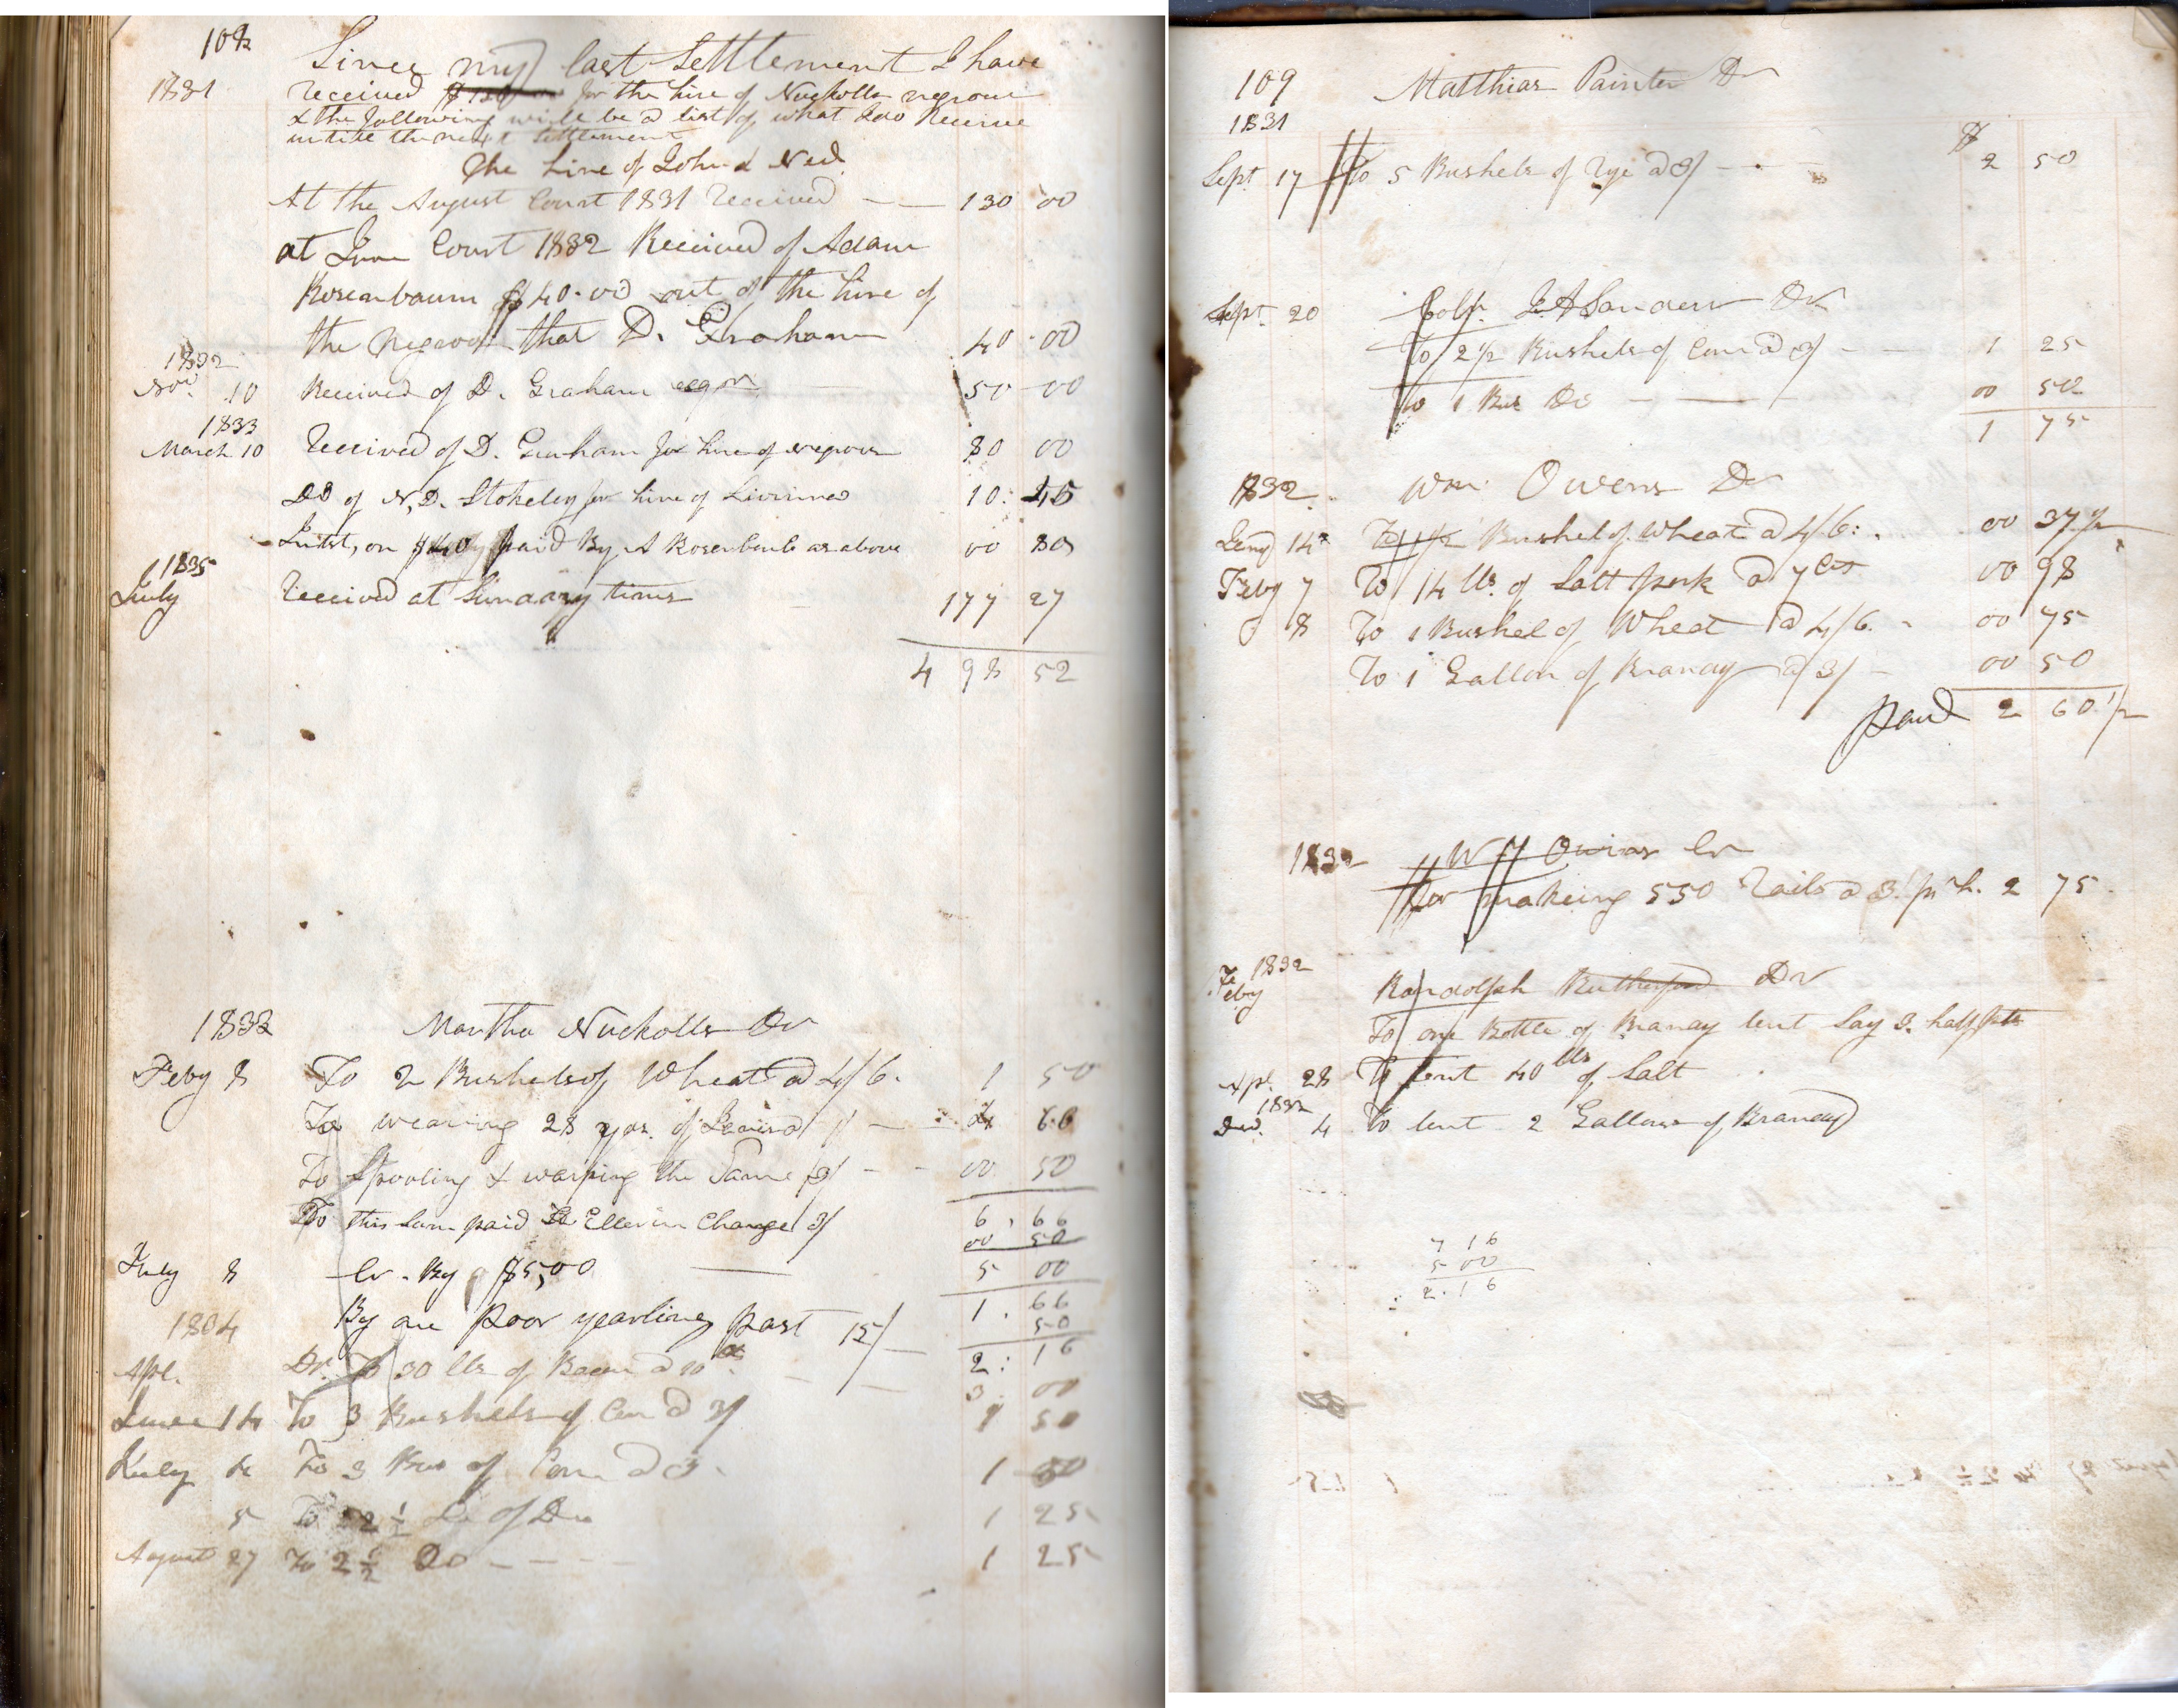 108
Since my last Settlement I have
1831 received for the hire of Nuckolls negroes
& the following will be a list of what I do Receive
untill the next Settlement
The hire of John & Ned
At the August Court 1831 received — — 130 00
at June Court 1832 Received of Adam
Rosenbaum $40.00 out of the hire of
the Negroes that D. Graham 40.00
1832
Nov. 10 Received of D. Graham 50 00
1833
March 10 Received of D. Graham for hire of negroes 80 00
DO of N. D. Stokeley for hire of 10: 45
Intst, on $40 paid By A Rosenbaub as above 00 80
1835
July Received at Sundary times 177 27
498 52
1832 Martha Nuckolls Dr
Feby 8 To 2 Bushels of Wheat @ 4/6. 1 50
To weaving 28 yds. of 1/ — 4 66
To Spooling & warping the Same 3/ - - 00 50
6.66
To this Sum paid Ellen in Change 3/ 00 50
July 8 Cr. By $5,00 — 5 00
1.66
By one poor yearling past 15/ — 50
1834 2:16
Apl. Dr. To 30 lbs of Bacon @ 10 cts — 3. 00
June 14 To 3 Bushels of Corn @ 3/ 1 50
July 4 To 3 Bus of Corn @ 3. 1 50
5 To 2 1/2 Do of Do 1 25
August 27 To 2 1/2 Do - - - - 1 25
109 Matthias Painter Dr
1831 $
Sept 17 To 5 Bushels of Rye @ 3/ — 2 50
Sept. 20 Colo. J. A Sanders Dr
To 2 1/2 Bushels of Corn @ 3/ - — 1 25
To 1 Bus Do — — 00 50
1 75
1832. Wm. Owens Dr
Jany 14 To 1/2 Bushel of Wheat @ 4/6: . 00 37 1/2
Feby 7 To 14 lbs. of Salt pork @ 7 Cts 00 98
8 To 1 Bushel of Wheat @ 4/6. - 00 75
To 1 Gallon of Brandy @ 3/ - 00 50
paid 2 60 1/2
1832 Wm Owens Cr
For makeing 550 rails @ 3/ pr h. 2 75.
1832
Feby Randolph Rutherford Dr
To one Bottle of Brandy lent Say 3. half pts
Apl. 28 To lent 40 lbs of Salt
1832
Dec. 4 To lent 2 Gallons of Brandy
7 16
5 00
2.16